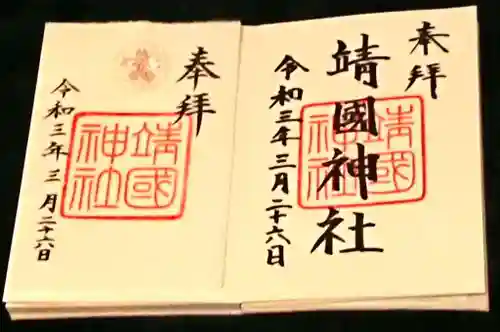 奉拝
靖國神社
靖國神社
令和三年三月二十六日
奉拝
靖國神社
令和三年三月二十六日